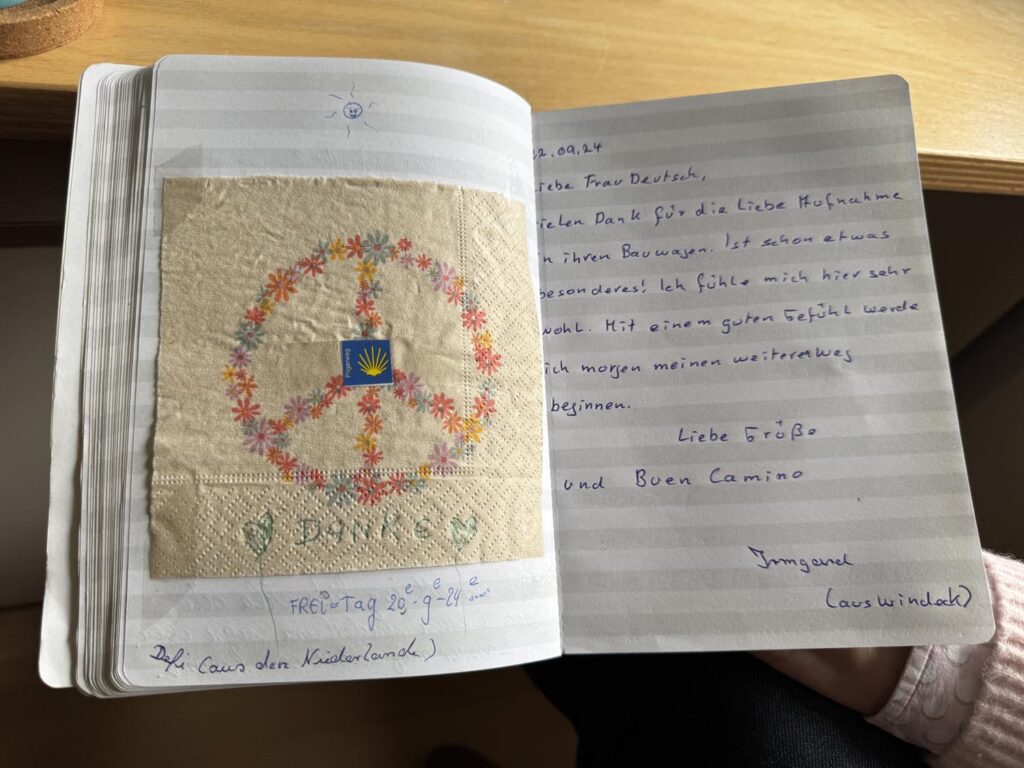 Pilgerweg
DANKE
FREI=Tag 20e-9e-24e
Defi (aus den Niederlande)
22.09.24
Liebe Frau Deutsch,
Vielen Dank für die Liebe Aufnahme
in ihren Bauwagen. Ist schon etwas
besonderes! Ich fühle mich hier sehr
wohl. Mit einem guten Gefühl werde
ich morgen meinen weiterenweg
beginnen.
Liebe Grüße
und Buen Camino
Irmgard
(aus Windeck)